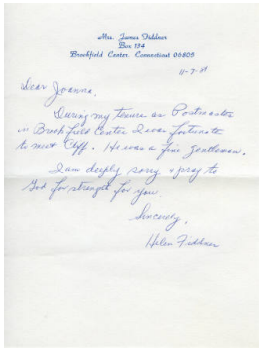 Mrs. James Fiddner
Box 134
Brookfield Center, Connecticut 06805
11-7-
Dear Joanna,
During my tenure as Postmaster
in Brookfield Center I was fortunate
to meet Cliff. He was a fine gentleman.
I am deeply sorry & pray to
God for strength for you.
Sincerely,
Helen Fiddner